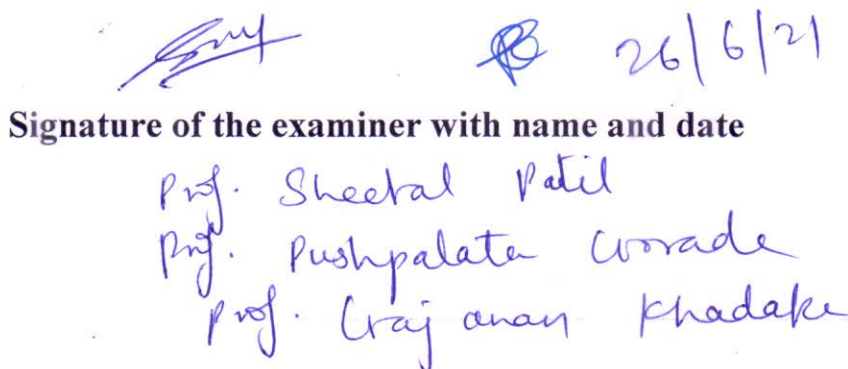 26/6/21
Signature of the examiner with name and date
Prof. Sheetal Patil
Prof. Pushpalata
Prof. Gajanan Khadake